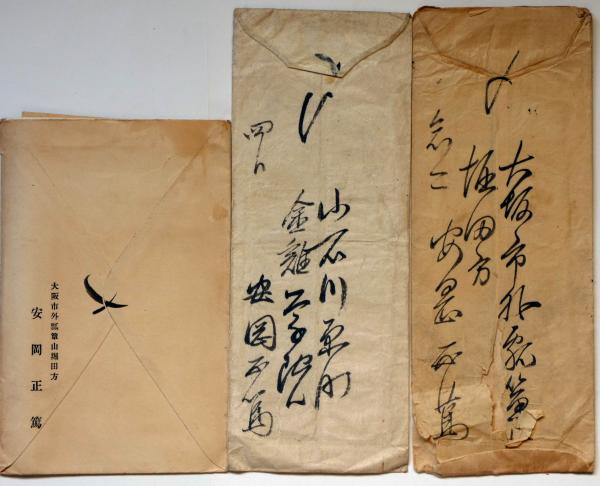 大阪市外瓢箪山堀田方
安岡正篤
〆
四日
小石川原町
金雞学院
安岡正篤
〆
大阪市外瓢箪山
堀田方
念二 安岡正篤